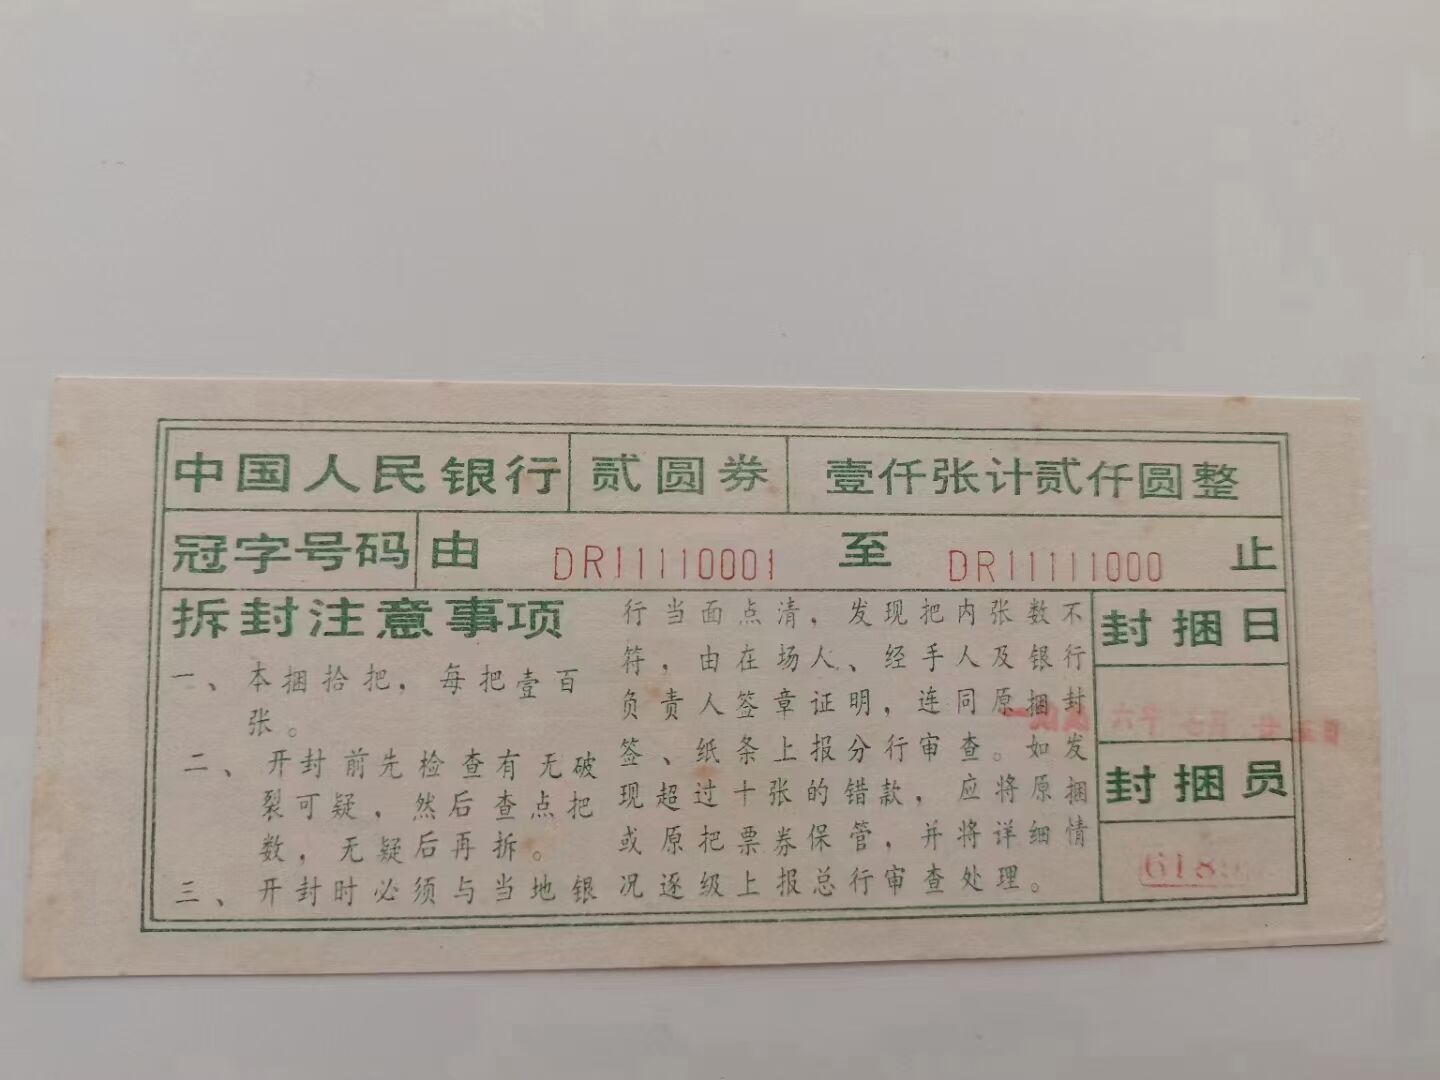 中国人民银行 贰圆券 壹仟张计贰仟圆整
冠字号码 由 DR11110001 至 DR11111000 止
拆封注意事项
一、本捆拾把，每把壹百
张。
二、开封前先检查有无破
裂可疑，然后查点把
数，无疑后再拆。
三、开封时必须与当地银
行当面点清，发现把内张数不
符，由在场人、经手人及银行
负责人签章证明，连同原捆封
签、纸条上报分行审查。如发
现超过十张的错款，应将原捆
或原把票券保管，并将详细情
况逐级上报总行审查处理。
封捆日
六年七月
封捆员
618